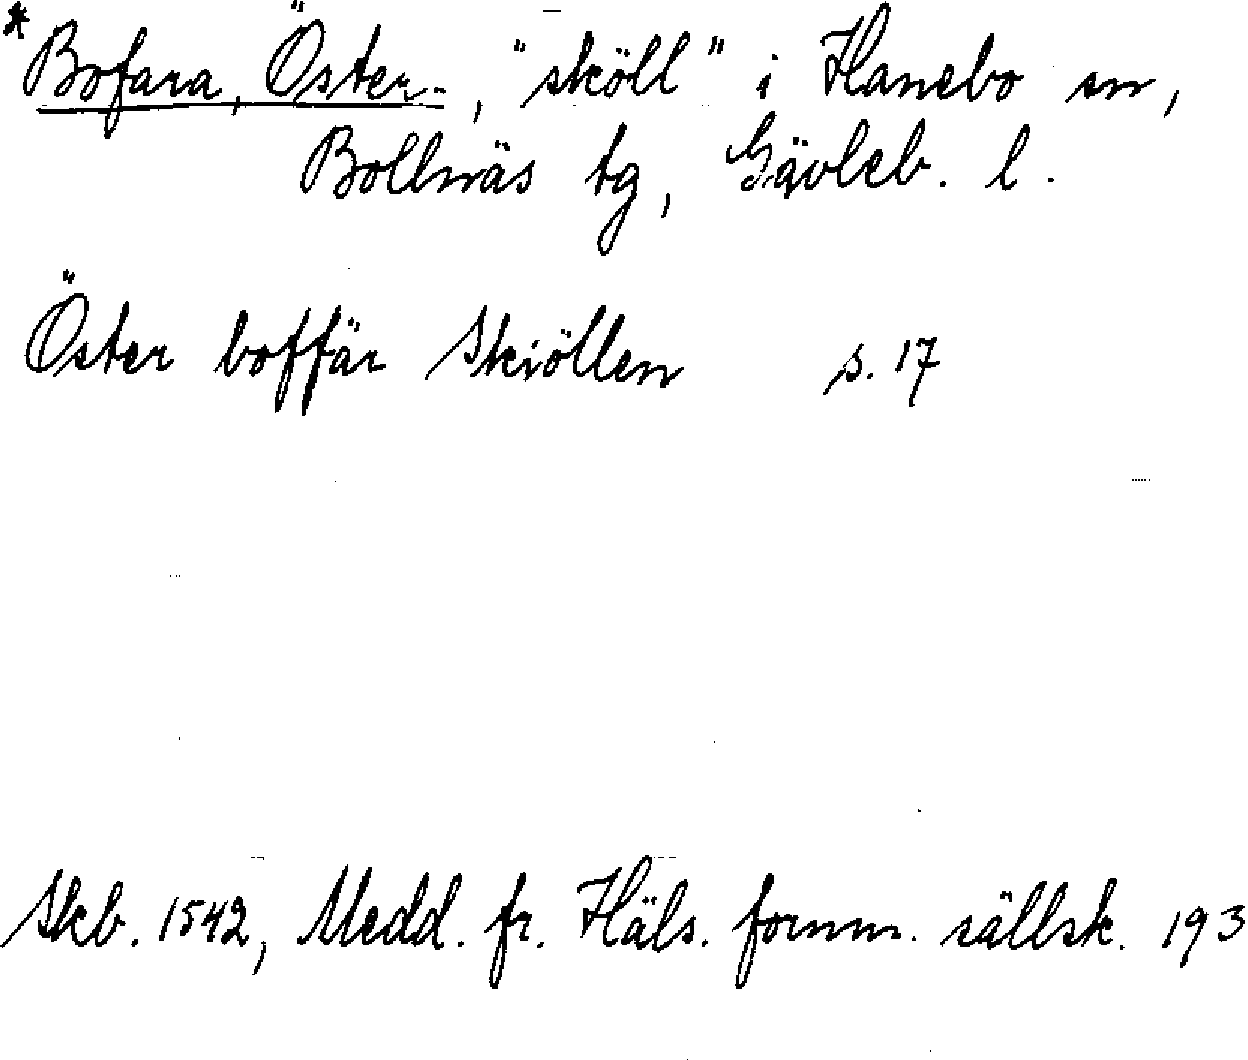 *Bofara, Öster-, "sköll" i Hanebo sn,
Bollnäs tg, Gävleb. l.
Öster boffär Skiöllen s. 17
Skb. 1542, Medd. fr. Häls. fornm. sällsk. 193